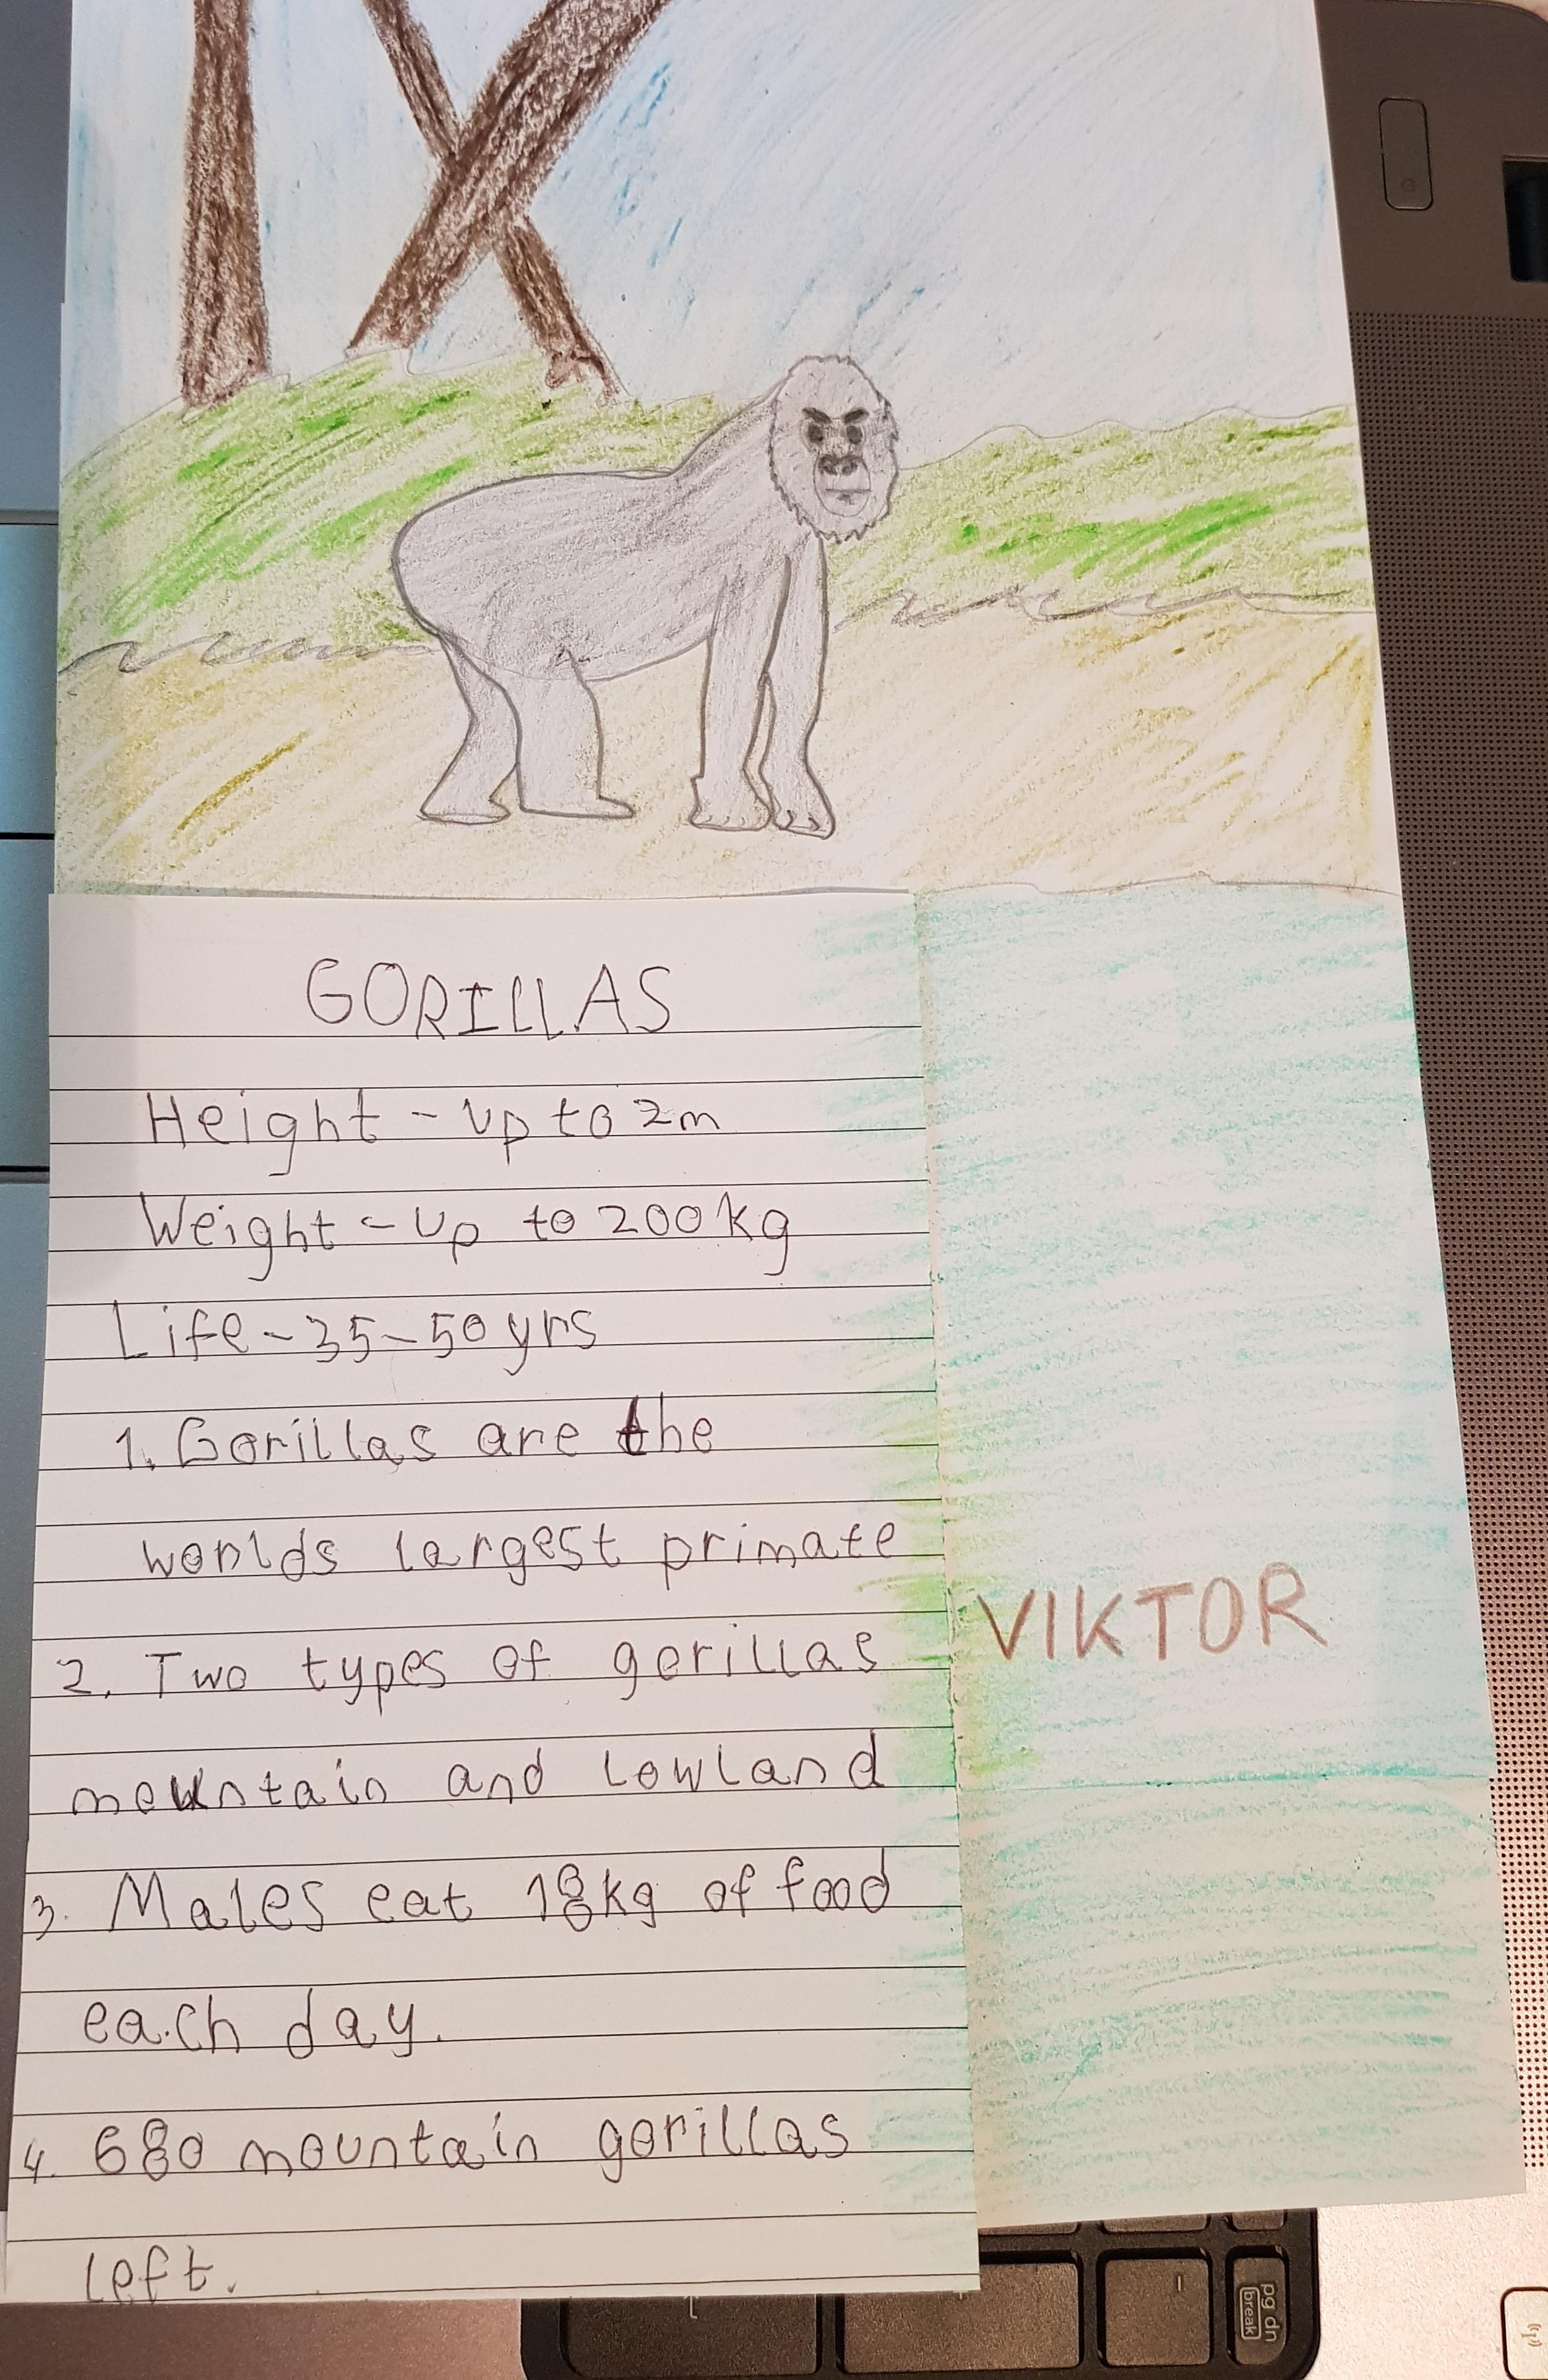 GORILLAS
Height - up to 2m
Weight - up to 200kg
Life - 35 - 50 yrs
1. Gorillas are the
worlds largest primate
2. Two types of gorillas
mountain and lowland
3. Males eat 18kg of food
each day.
4. 680 mountain gorillas
left.
VIKTOR
pg dn
break